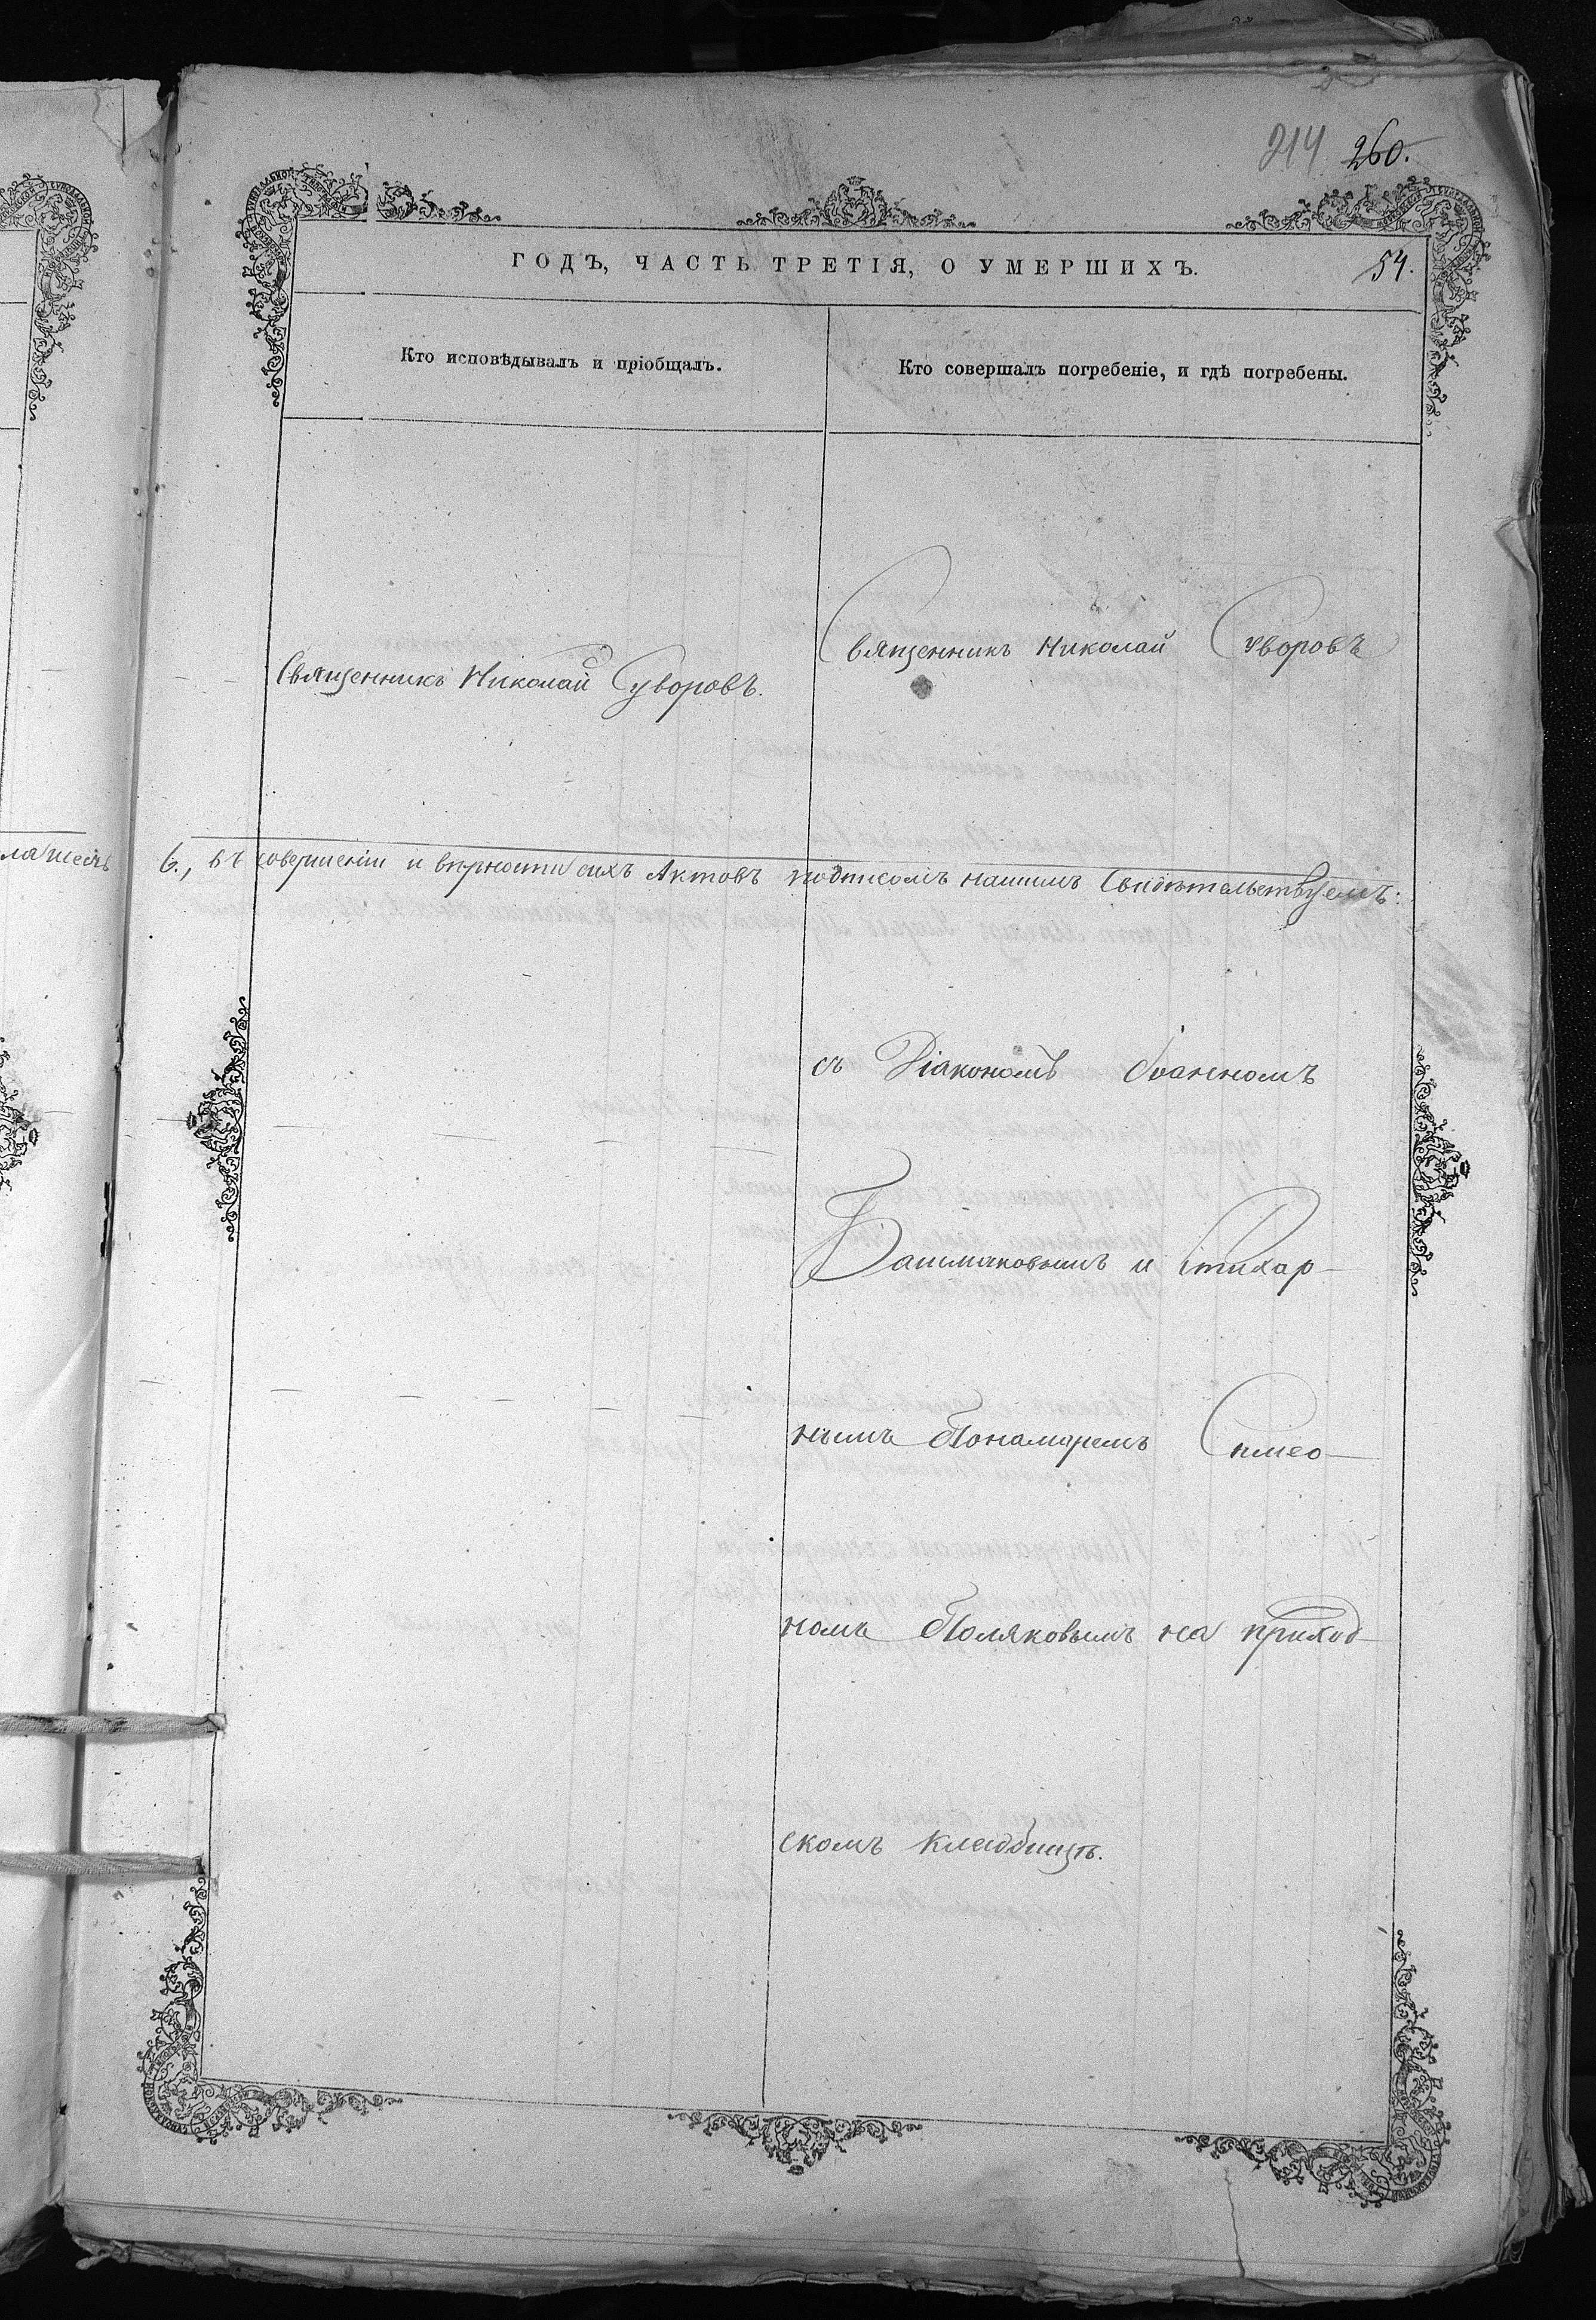 214 260.
ГОДЪ, ЧАСТЬ ТРЕТІЯ, О УМЕРШИХЪ.
54.
Кто исповѣдывалъ и пріобщалъ.
Кто совершалъ погребеніе, и гдѣ погребены.
Священникъ Николай Суворовъ.
Священникъ Николай Суворовъ
6., въ совершеніи и вѣрности сихъ Актовъ подписомъ нашимъ Свидѣтельствуемъ:
съ Діакономъ Іоанномъ
Башмаковымъ и Стихар-
нымъ Понамаремъ Симео-
номъ Поляковымъ на приход-
скомъ кладбищѣ.